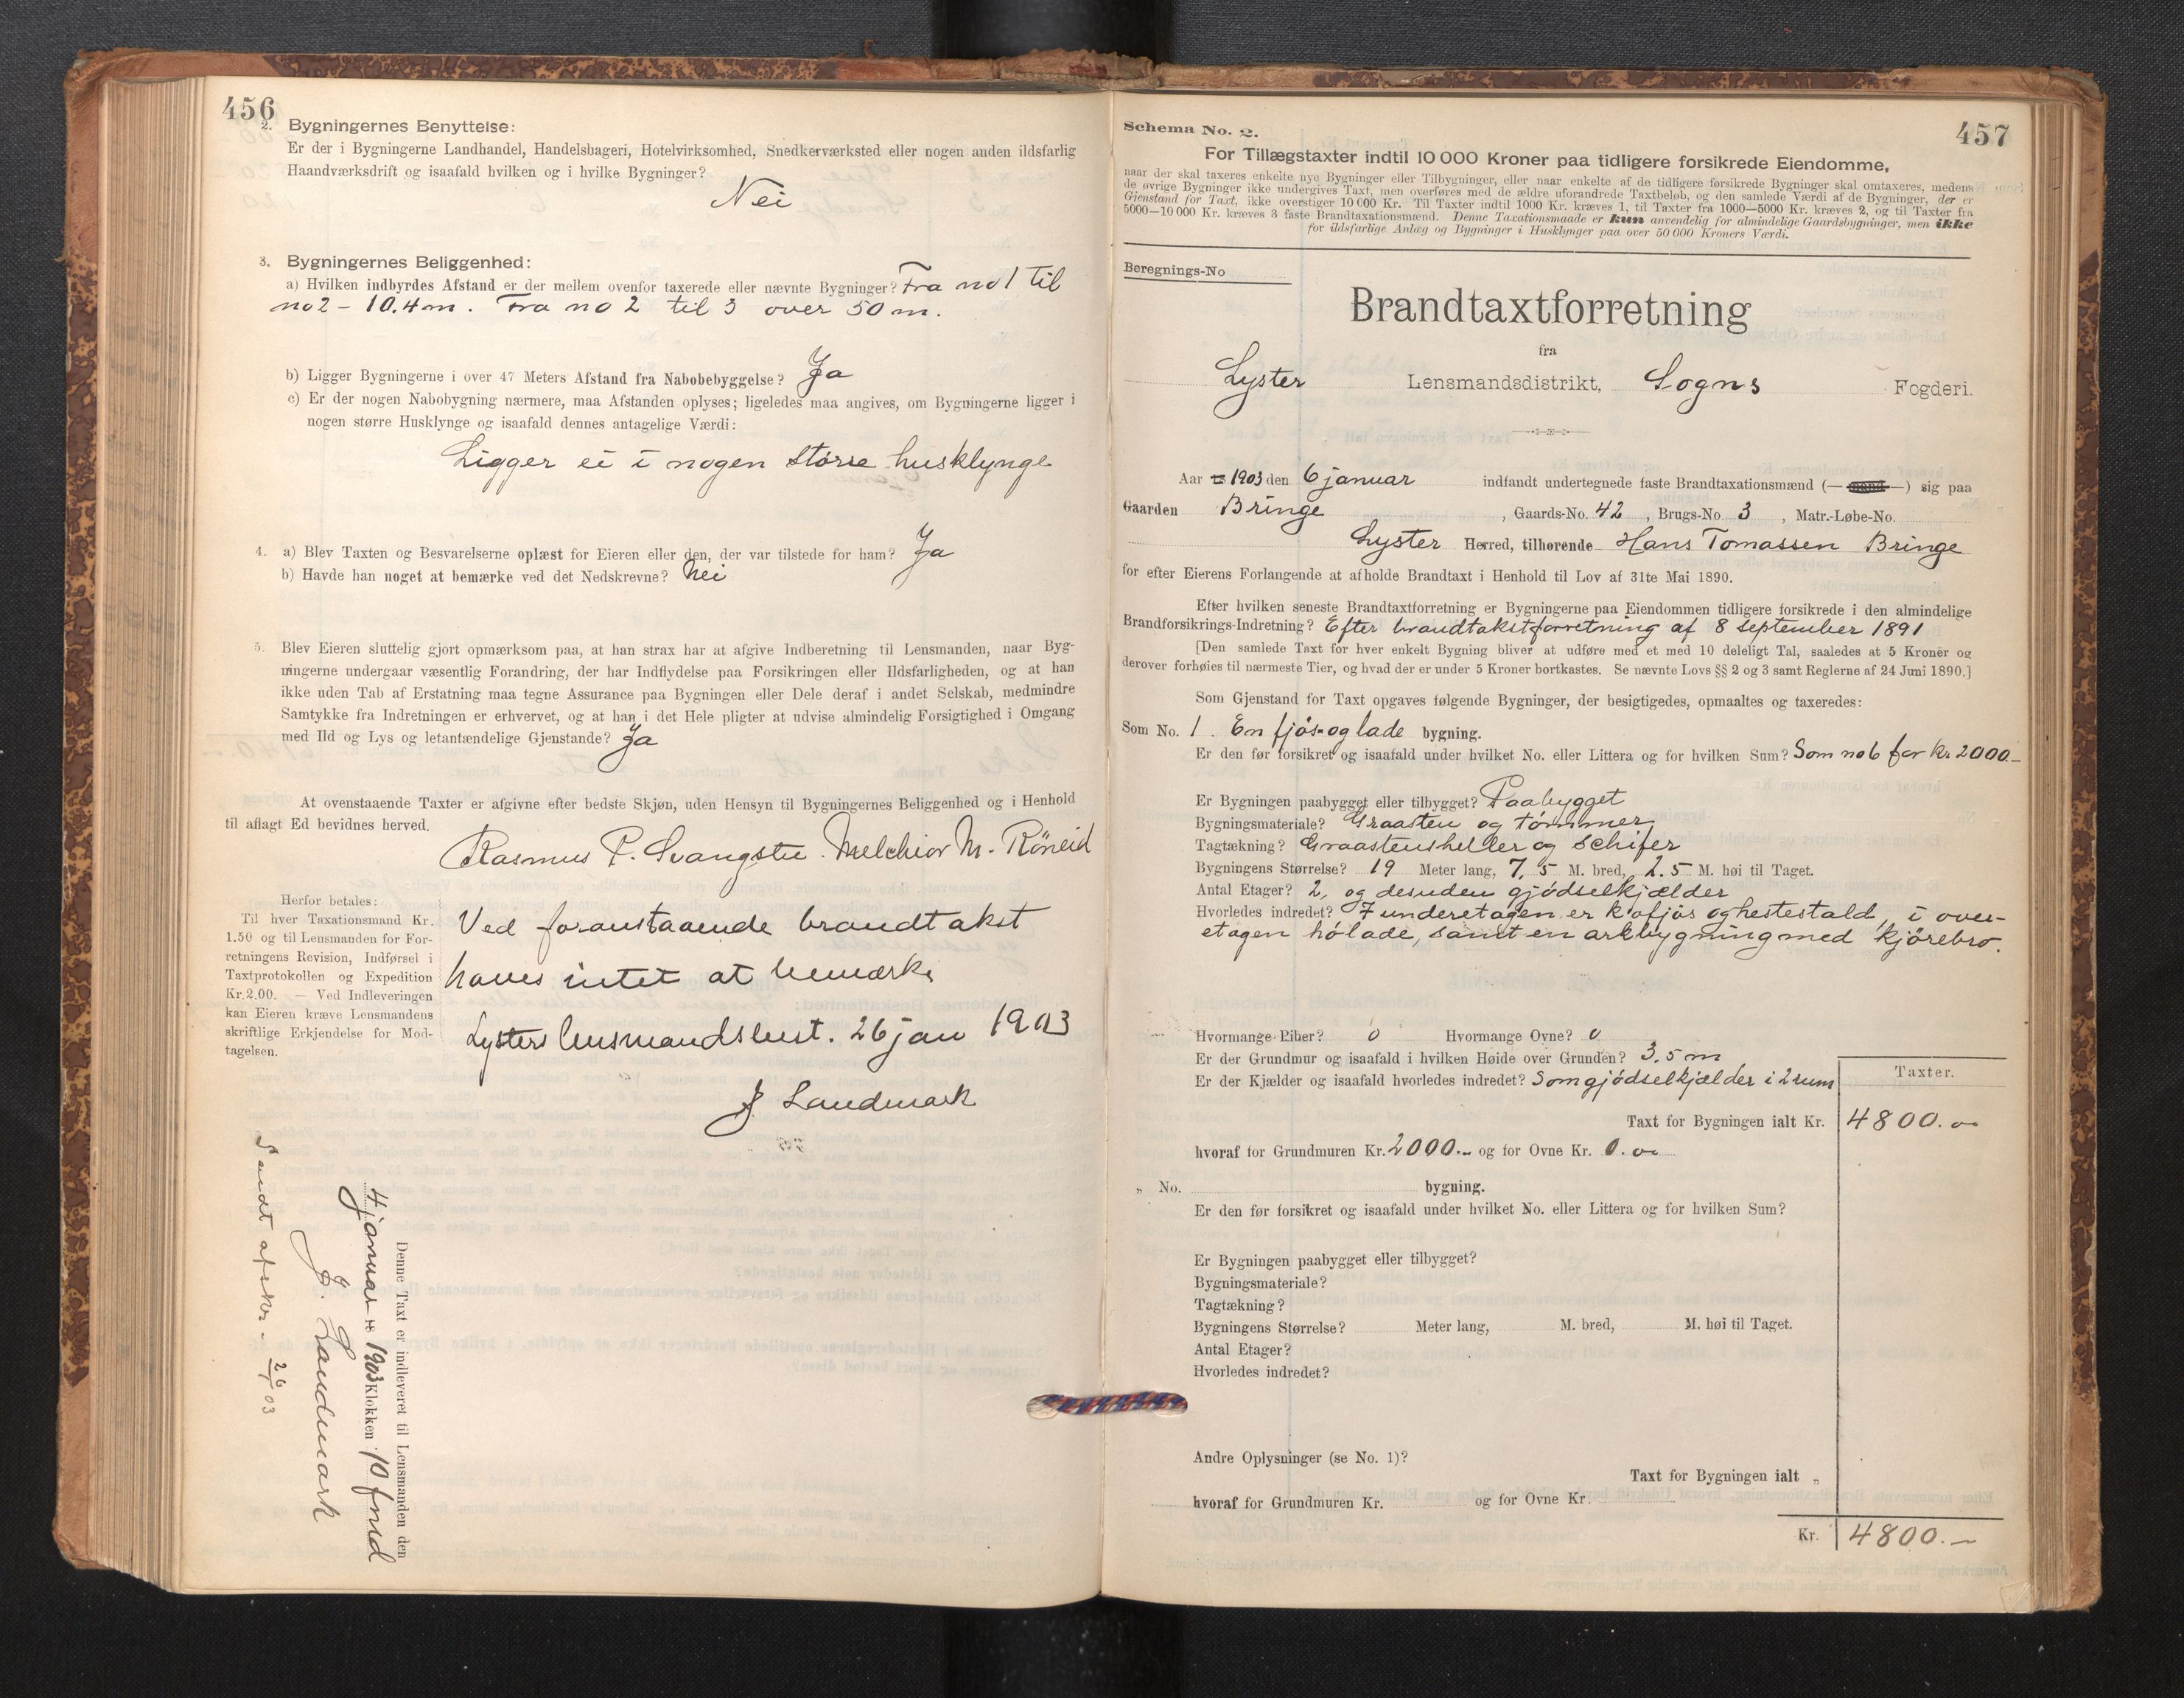 456
2. Bygningernes Benyttelse:
Er der i Bygningerne Landhandel, Handelsbageri, Hotelvirksomhed, Snedkerværksted eller nogen anden ildsfarlig
Haandværksdrift og isaafald hvilken og i hvilke Bygninger?
Nei
3. Bygningernes Beliggenhed:
a) Hvilken indbyrdes Afstand er der mellem ovenfor taxerede eller nævnte Bygninger? Fra no 1 til
no 2 - 10.4 m. Fra no 2 til 3 over 50 m.
b) Ligger Bygningerne i over 47 Meters Afstand fra Nabobebyggelse? Ja
c) Er der nogen Nabobygning nærmere, maa Afstanden oplyses; ligeledes maa angives, om Bygningerne ligger i
nogen større Husklynge og isaafald dennes antagelige Værdi:
Ligger ei i nogen større husklynge
4. a) Blev Taxten og Besvarelserne oplæst for Eieren eller den, der var tilstede for ham? Ja
b) Havde han noget at bemærke ved det Nedskrevne? Nei
5. Blev Eieren sluttelig gjort opmærksom paa, at han strax har at afgive Indberetning til Lensmanden, naar Byg-
ningerne undergaar væsentlig Forandring, der har Indflydelse paa Forsikringen eller Ildsfarligheden, og at han
ikke uden Tab af Erstatning maa tegne Assurance paa Bygningen eller Dele deraf i andet Selskab, medmindre
Samtykke fra Indretningen er erhvervet, og at han i det Hele pligter at udvise almindelig Forsigtighed i Omgang
med Ild og Lys og letantændelige Gjenstande? Ja
At ovenstaaende Taxter er afgivne efter bedste Skjøn, uden Hensyn til Bygningernes Beliggenhed og i Henhold
til aflagt Ed bevidnes herved.
Rasmus P. Svangstu. Melchior M. Röneid
Herfor betales:
Til hver Taxationsmand Kr.
1.50 og til Lensmanden for For-
retningens Revision, Indførsel i
Taxtprotokollen og Expedition
Kr. 2.00. — Ved Indleveringen
kan Eieren kræve Lensmandens
skriftlige Erkjendelse for Mod-
tagelsen.
Ved foranstaaende brandtakst
haves intet at bemærke
Lysters lensmandsbest. 26 jan 1903
J Landmark
Denne Taxt er indleveret til Lensmanden den
4 januar 1903 Klokken 10 fmd
J. Landmark
Sendt afskr. 26/1 03
457
Schema No. 2.
For Tillægstaxter indtil 10 000 Kroner paa tidligere forsikrede Eiendomme,
naar der skal taxeres enkelte nye Bygninger eller Tilbygninger, eller naar enkelte af de tidligere forsikrede Bygninger skal omtaxeres, medens
de øvrige Bygninger ikke undergives Taxt, men overføres med de ældre uforandrede Taxtbeløb, og den samlede Værdi af de Bygninger, der er
Gjenstand for Taxt, ikke overstiger 10 000 Kr. Til Taxter indtil 1000 Kr. kræves 1, til Taxter fra 1000—5000 Kr. kræves 2, og til Taxter fra
5000—10 000 Kr. kræves 3 faste Brandtaxationsmænd. Denne Taxationsmaade er kun anvendelig for almindelige Gaardsbygninger, men ikke
for ildsfarlige Anlæg og Bygninger i Husklynger paa over 50 000 Kroners Værdi.
Beregnings-No
Brandtaxtforretning
fra
Lyster Lensmandsdistrikt, Sogns Fogderi.
Aar 1903 den 6 januar indfandt undertegnede faste Brandtaxationsmænd (— mand —) sig paa
Gaarden Bringe, Gaards-No. 42, Brugs-No. 3, Matr.-Løbe-No.
Lyster Herred, tilhørende Hans Tomassen Bringe
for efter Eierens Forlangende at afholde Brandtaxt i Henhold til Lov af 31te Mai 1890.
Efter hvilken seneste Brandtaxtforretning er Bygningerne paa Eiendommen tidligere forsikrede i den almindelige
Brandforsikrings-Indretning? Efter brandtakstforretning af 8 september 1891
[Den samlede Taxt for hver enkelt Bygning bliver at udføre med et med 10 deleligt Tal, saaledes at 5 Kroner og
derover forhøies til nærmeste Tier, og hvad der er under 5 Kroner bortkastes. Se nævnte Lovs §§ 2 og 3 samt Reglerne af 24 Juni 1890.]
Som Gjenstand for Taxt opgaves følgende Bygninger, der besigtigedes, opmaaltes og taxeredes:
Som No. 1. En fjös- og lade bygning.
Er den før forsikret og isaafald under hvilket No. eller Littera og for hvilken Sum? Som no 6 for kr 2000.-
Er Bygningen paabygget eller tilbygget? Paabygget
Bygningsmateriale? Graasten og tömmer
Tagtækning? Graastensheller og schifer
Bygningens Størrelse? 19 Meter lang, 7,5 M. bred, 2.5 M. høi til Taget.
Antal Etager? 2, og desuden gjödselkjælder
Hvorledes indredet? I underetagen er kofjös og hestestald, i over-
etagen hölade, samt en arkbygning med kjörebro.
Hvormange Piber? 0 Hvormange Ovne? 0
Er der Grundmur og isaafald i hvilken Høide over Grunden? 3.5 m
Er der Kjælder og isaafald hvorledes indredet? Som gjödselkjælder i 2 rum
Taxter.
Taxt for Bygningen ialt Kr. 4800.00
hvoraf for Grundmuren Kr. 2000.- og for Ovne Kr. 0.00
„ No. bygning.
Er den før forsikret og isaafald under hvilket No. eller Littera og for hvilken Sum?
Er Bygningen paabygget eller tilbygget?
Bygningsmateriale?
Tagtækning?
Bygningens Størrelse? Meter lang, M. bred, M. høi til Taget.
Antal Etager?
Hvorledes indredet?
Andre Oplysninger (se No. 1)?
Taxt for Bygningen ialt „
hvoraf for Grundmuren Kr. og for Ovne Kr.
Kr. 4800.-